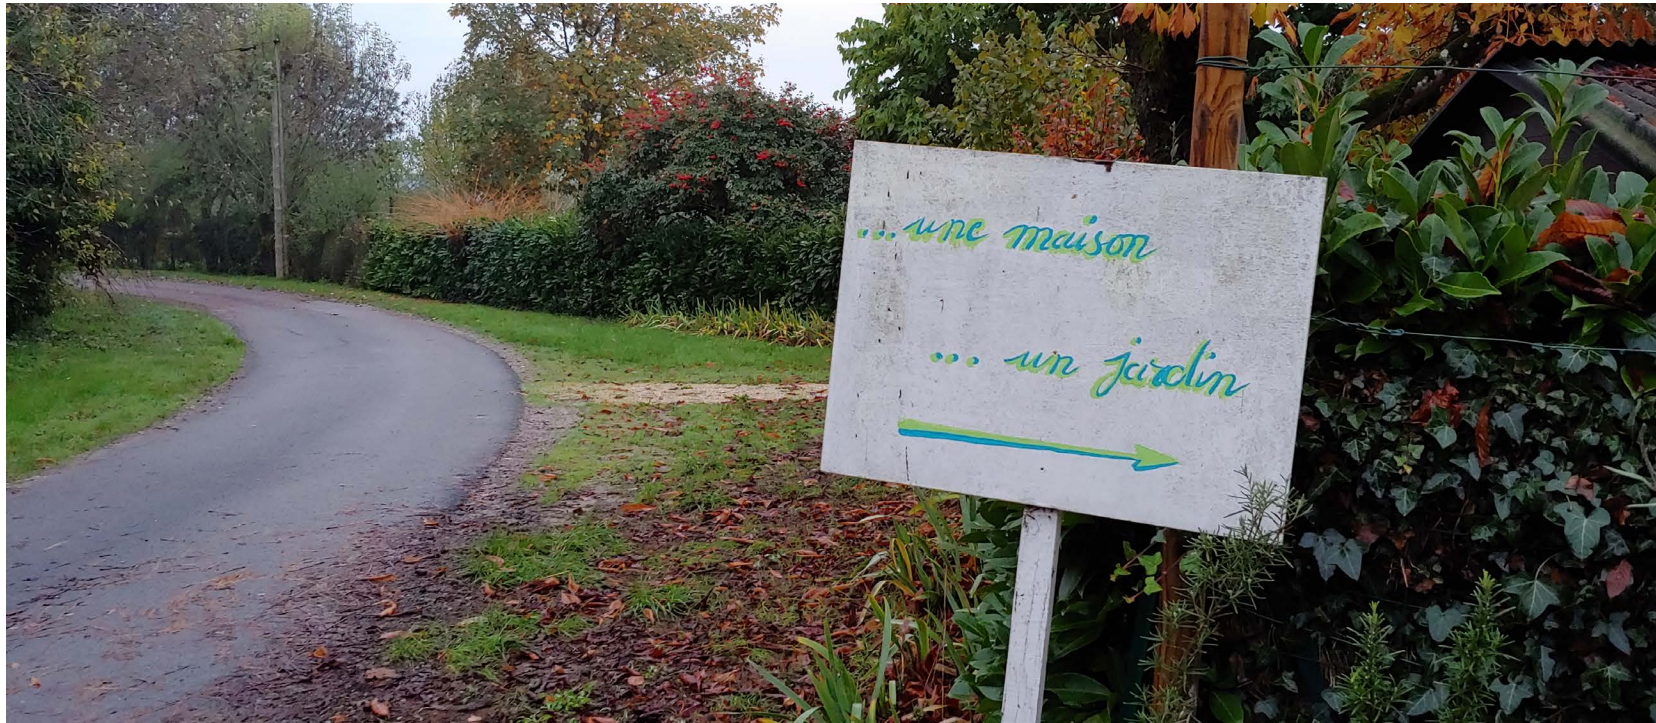 ...une maison
... un jardin